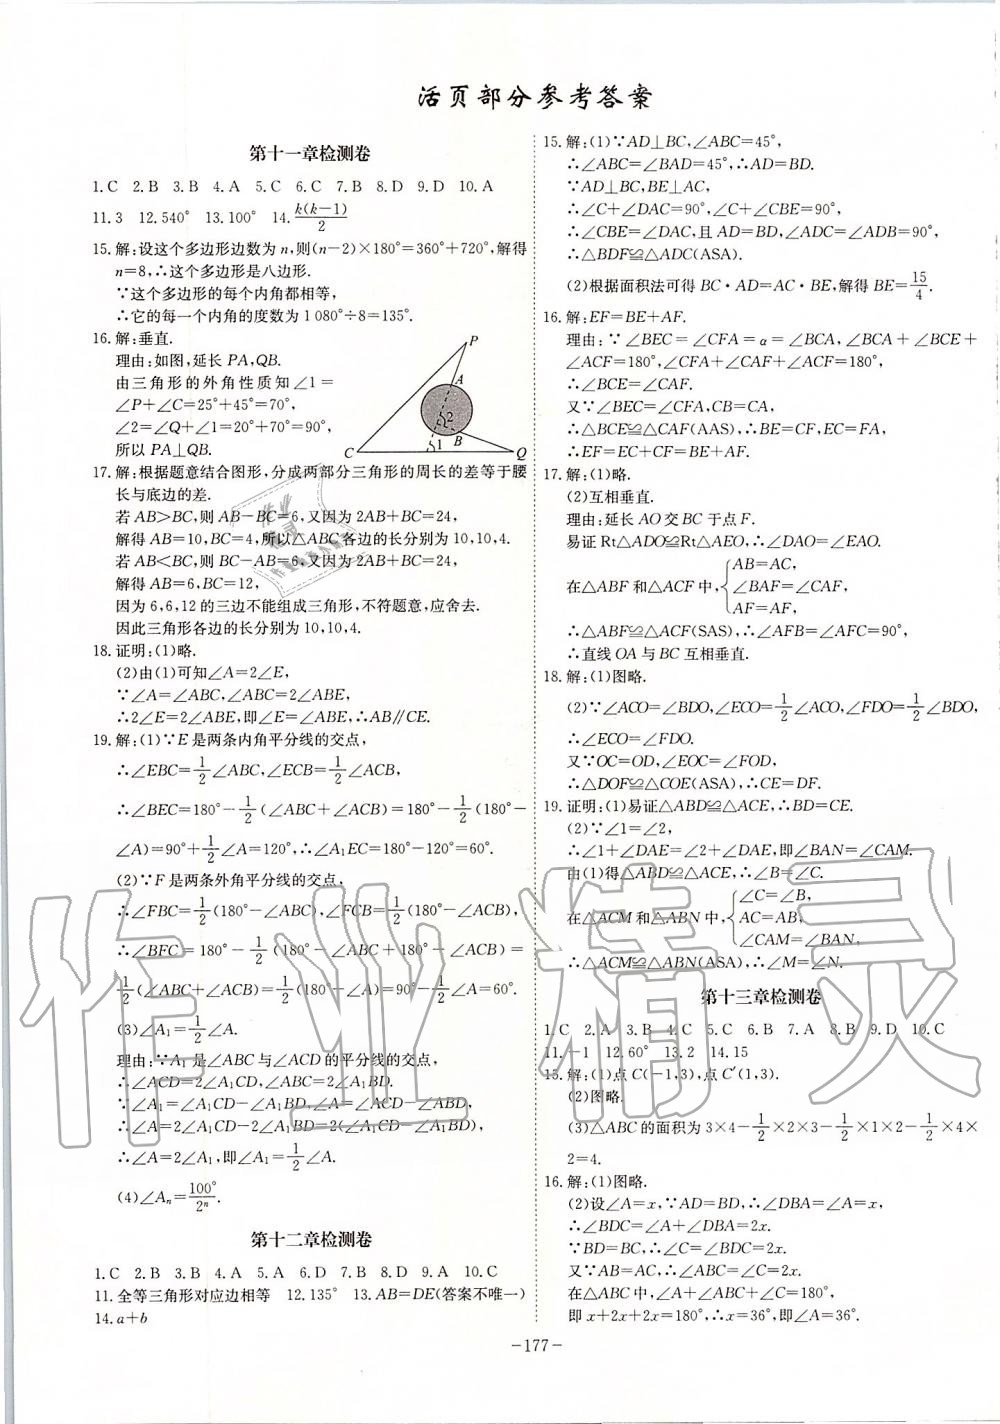 活页部分参考答案
第十一章检测卷
1.C 2.B 3.B 4.A 5.C 6.C 7.B 8.D 9.D 10.A
11.3 12.540° 13.100° 14.k(k−1)/2
15.解:设这个多边形边数为n,则(n−2)×180°=360°+720°,解得
n=8,∴这个多边形是八边形.
∵这个多边形的每个内角都相等,
∴它的每一个内角的度数为1 080°÷8=135°.
16.解:垂直.
理由:如图,延长PA,QB.
由三角形的外角性质知∠1=
∠P+∠C=25°+45°=70°,
∠2=∠Q+∠1=20°+70°=90°,
所以PA⊥QB.
P
A
2
B
1
C
Q
17.解:根据题意结合图形,分成两部分三角形的周长的差等于腰
长与底边的差.
若AB>BC,则AB−BC=6,又因为2AB+BC=24,
解得AB=10,BC=4,所以△ABC各边的长分别为10,10,4.
若AB<BC,则BC−AB=6,又因为2AB+BC=24,
解得AB=6,BC=12,
因为6,6,12的三边不能组成三角形,不符题意,应舍去.
因此三角形各边的长分别为10,10,4.
18.证明:(1)略.
(2)由(1)可知∠A=2∠E,
∵∠A=∠ABC,∠ABC=2∠ABE,
∴2∠E=2∠ABE,即∠E=∠ABE,∴AB∥CE.
19.解:(1)∵E是两条内角平分线的交点,
∴∠EBC=1/2∠ABC,∠ECB=1/2∠ACB,
∴∠BEC=180°−1/2(∠ABC+∠ACB)=180°−1/2(180°−
∠A)=90°+1/2∠A=120°,∴∠A₁EC=180°−120°=60°.
(2)∵F是两条外角平分线的交点,
∴∠FBC=1/2(180°−∠ABC),∠FCB=1/2(180°−∠ACB),
∴∠BFC=180°−1/2(180°−∠ABC+180°−∠ACB)=
1/2(∠ABC+∠ACB)=1/2(180°−∠A)=90°−1/2∠A=60°.
(3)∠A₁=1/2∠A.
理由:∵A₁是∠ABC与∠ACD的平分线的交点,
∴∠ACD=2∠A₁CD,∠ABC=2∠A₁BD.
∵∠A₁=∠A₁CD−∠A₁BD,∠A=∠ACD−∠ABD,
∴∠A=2∠A₁CD−2∠A₁BD=2(∠A₁CD−∠A₁BD),
∴∠A=2∠A₁,即∠A₁=1/2∠A.
(4)∠Aₙ=100°/2ⁿ.
第十二章检测卷
1.C 2.B 3.B 4.A 5.A 6.D 7.B 8.D 9.A 10.C
11.全等三角形对应边相等 12.135° 13.AB=DE(答案不唯一)
14.a+b
15.解:(1)∵AD⊥BC,∠ABC=45°,
∴∠ABC=∠BAD=45°,∴AD=BD.
∵AD⊥BC,BE⊥AC,
∴∠C+∠DAC=90°,∠C+∠CBE=90°,
∴∠CBE=∠DAC,且AD=BD,∠ADC=∠ADB=90°,
∴△BDF≌△ADC(ASA).
(2)根据面积法可得BC·AD=AC·BE,解得BE=15/4.
16.解:EF=BE+AF.
理由:∵∠BEC=∠CFA=α=∠BCA,∠BCA+∠BCE+
∠ACF=180°,∠CFA+∠CAF+∠ACF=180°,
∴∠BCE=∠CAF.
又∵∠BEC=∠CFA,CB=CA,
∴△BCE≌△CAF(AAS),∴BE=CF,EC=FA,
∴EF=EC+CF=BE+AF.
17.解:(1)略.
(2)互相垂直.
理由:延长AO交BC于点F.
易证Rt△ADO≌Rt△AEO,∴∠DAO=∠EAO.
在△ABF和△ACF中,{AB=AC,
∠BAF=∠CAF,
AF=AF,
∴△ABF≌△ACF(SAS),∴∠AFB=∠AFC=90°,
∴直线OA与BC互相垂直.
18.解:(1)图略.
(2)∵∠ACO=∠BDO,∠ECO=1/2∠ACO,∠FDO=1/2∠BDO,
∴∠ECO=∠FDO.
又∵OC=OD,∠EOC=∠FOD,
∴△DOF≌△COE(ASA),∴CE=DF.
19.证明:(1)易证△ABD≌△ACE,∴BD=CE.
(2)∵∠1=∠2,
∴∠1+∠DAE=∠2+∠DAE,即∠BAN=∠CAM.
由(1)得△ABD≌△ACE,∴∠B=∠C.
在△ACM和△ABN中,{∠C=∠B,
AC=AB,
∠CAM=∠BAN,
∴△ACM≌△ABN(ASA),∴∠M=∠N.
第十三章检测卷
1.C 2.A 3.B 4.C 5.C 6.B 7.A 8.B 9.D 10.C
11.−1 12.60° 13.2 14.15
15.解:(1)点C(−1,3),点C′(1,3).
(2)图略.
(3)△ABC的面积为3×4−1/2×2×3−1/2×1×2−1/2×4×
2=4.
16.解:(1)图略.
(2)设∠A=x,∵AD=BD,∴∠DBA=∠A=x,
∴∠BDC=∠A+∠DBA=2x.
∵BD=BC,∴∠C=∠BDC=2x.
又∵AB=AC,∴∠ABC=∠C=2x.
在△ABC中,∠A+∠ABC+∠C=180°,
即x+2x+2x=180°,∴x=36°,∴∠A=36°.
−177−
作业精灵